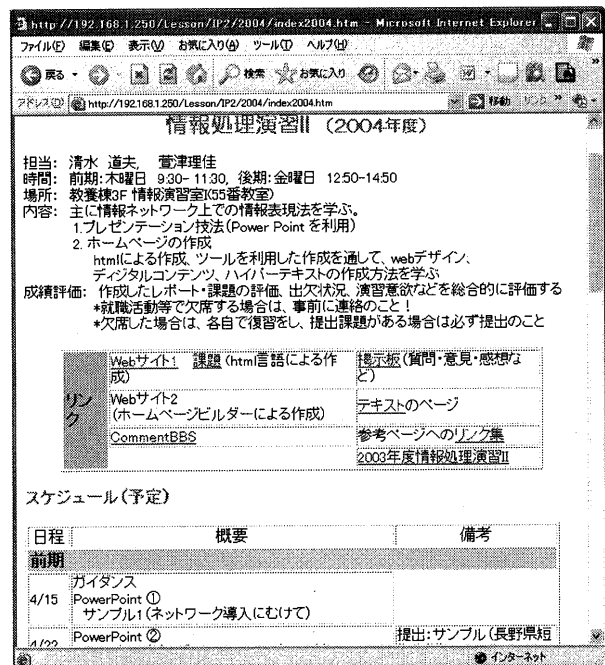 http://192.168.1.250/Lesson/IP2/2004/index2004.htm - Microsoft Internet Explorer
ファイル(F) 編集(E) 表示(V) お気に入り(A) ツール(T) ヘルプ(H)
戻る 検索 お気に入り
アドレス(D) http://192.168.1.250/Lesson/IP2/2004/index2004.htm 移動 リンク
情報処理演習II (2004年度)
担当: 清水 道夫, 菅津理佳
時間: 前期:木曜日 9:30-11:30, 後期:金曜日 12:50-14:50
場所: 教養棟3F 情報演習室(55番教室)
内容: 主に情報ネットワーク上での情報表現法を学ぶ。
1.プレゼンテーション技法(Power Pointを利用)
2. ホームページの作成
htmlによる作成、ツールを利用した作成を通して、webデザイン、
ディジタルコンテンツ、ハイパーテキストの作成方法を学ぶ
成績評価: 作成したレポート・課題の評価、出欠状況、演習意欲などを総合的に評価する
*就職活動等で欠席する場合は、事前に連絡のこと!
*欠席した場合は、各自で復習をし、提出課題がある場合は必ず提出のこと
リンク
Webサイト1 課題(html言語による作成)
掲示板(質問・意見・感想など)
Webサイト2
(ホームページビルダーによる作成)
テキストのページ
CommentBBS
参考ページへのリンク集
2003年度情報処理演習II
スケジュール(予定)
日程 概要 備考
前期
4/15
ガイダンス
PowerPoint ①
サンプル1(ネットワーク導入にむけて)
4/22 PowerPoint ② 提出:サンプル(長野県短
インターネット